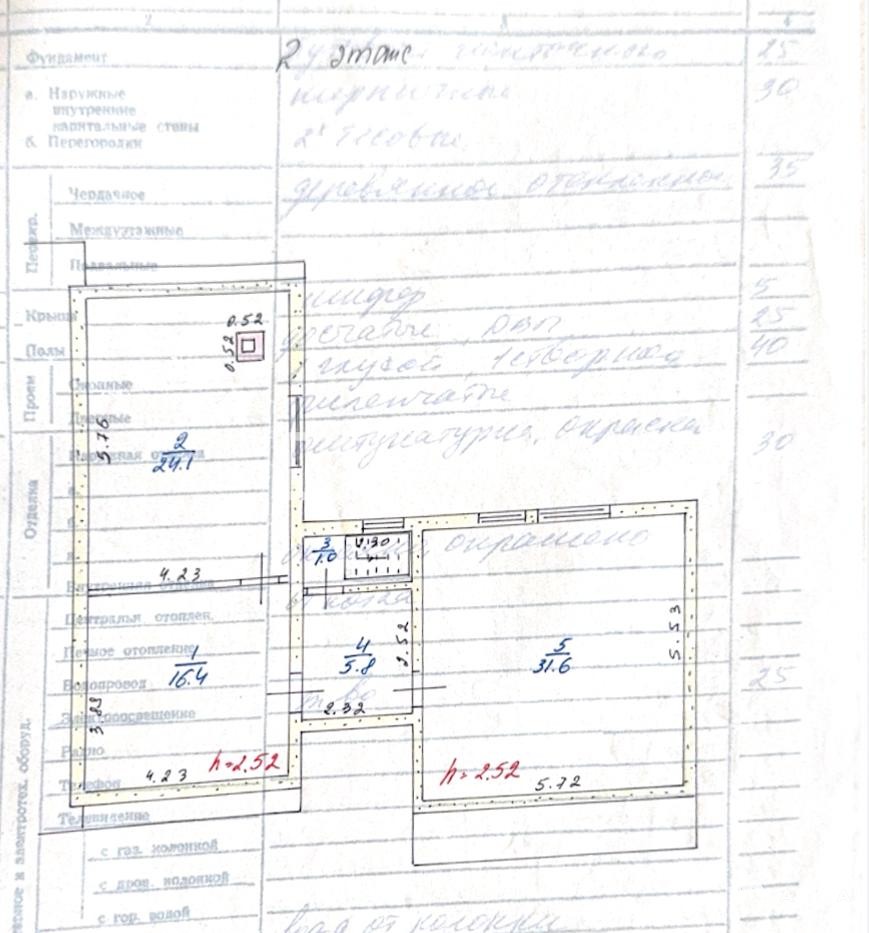 2 3 4
Фундамент 2 этаж 25
а. Наружные кирпичные 30
внутренние
капитальные стены
б. Перегородки 2х тесовые
35
Чердачное деревянное отепленное
Перекр.
Междуэтажные
Подвальные
Крыша шифер 5
0.52
Полы дощатые, ДВП 25
0.52
1 глухой, 1 створная 40
Проем
Оконные
Дверные филенчатые
5.76
2
24.1
Наружная отделка штукатурка, окраска 30
Отделка
а.
б.
в.
3
1.0
1.30
окрашено
4.23
Внутренняя отделка
Центральн отоплен. от котла
Печное отопление
1
16.4
4
5.8
2.52
5
31.6
5.53
Водопровод 25
Электроосвещение
3.88
2.32
Радио
h=2.52
h=2.52
4.23
Телефон
5.72
Телевидение
с газ. колонкой
с дров. колонкой
с гор. водой
вода от колонки